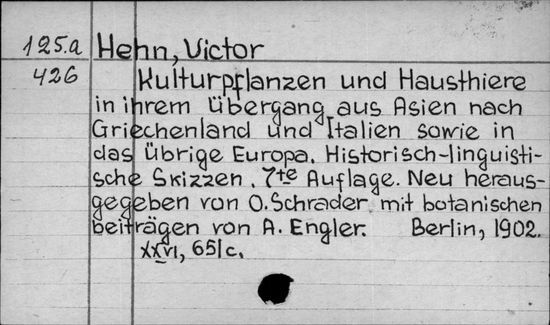 125.a Hehn, Victor
426 Kulturpflanzen und Hausthiere
in ihrem Übergang aus Asien nach
Griechenland und Italien sowie in
das übrige Europa. Historisch-linguisti-
sche Skizzen. 7te Auflage. Neu heraus-
gegeben von O. Schrader mit botanischen
beiträgen von A. Engler. Berlin, 1902.
XXVI, 651 c.